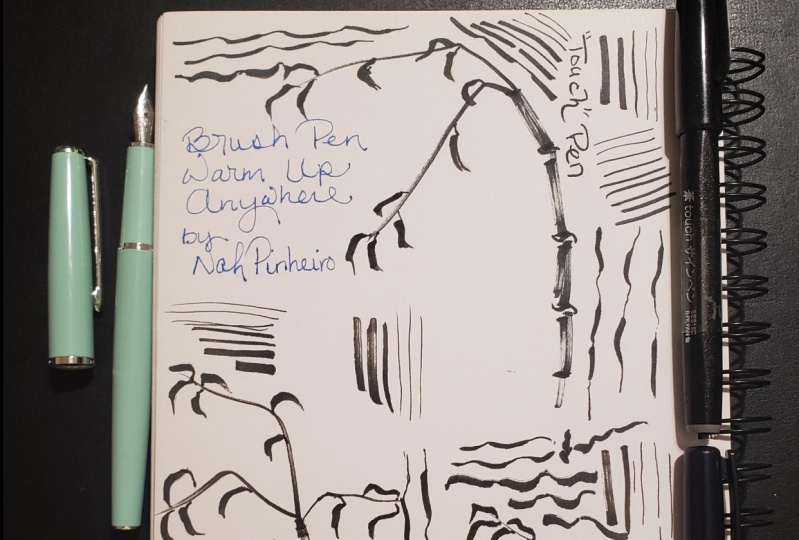 Brush Pen
Warm Up
Anywhere
by
Nah Pinheiro
"Touch" Pen
touch サインペン